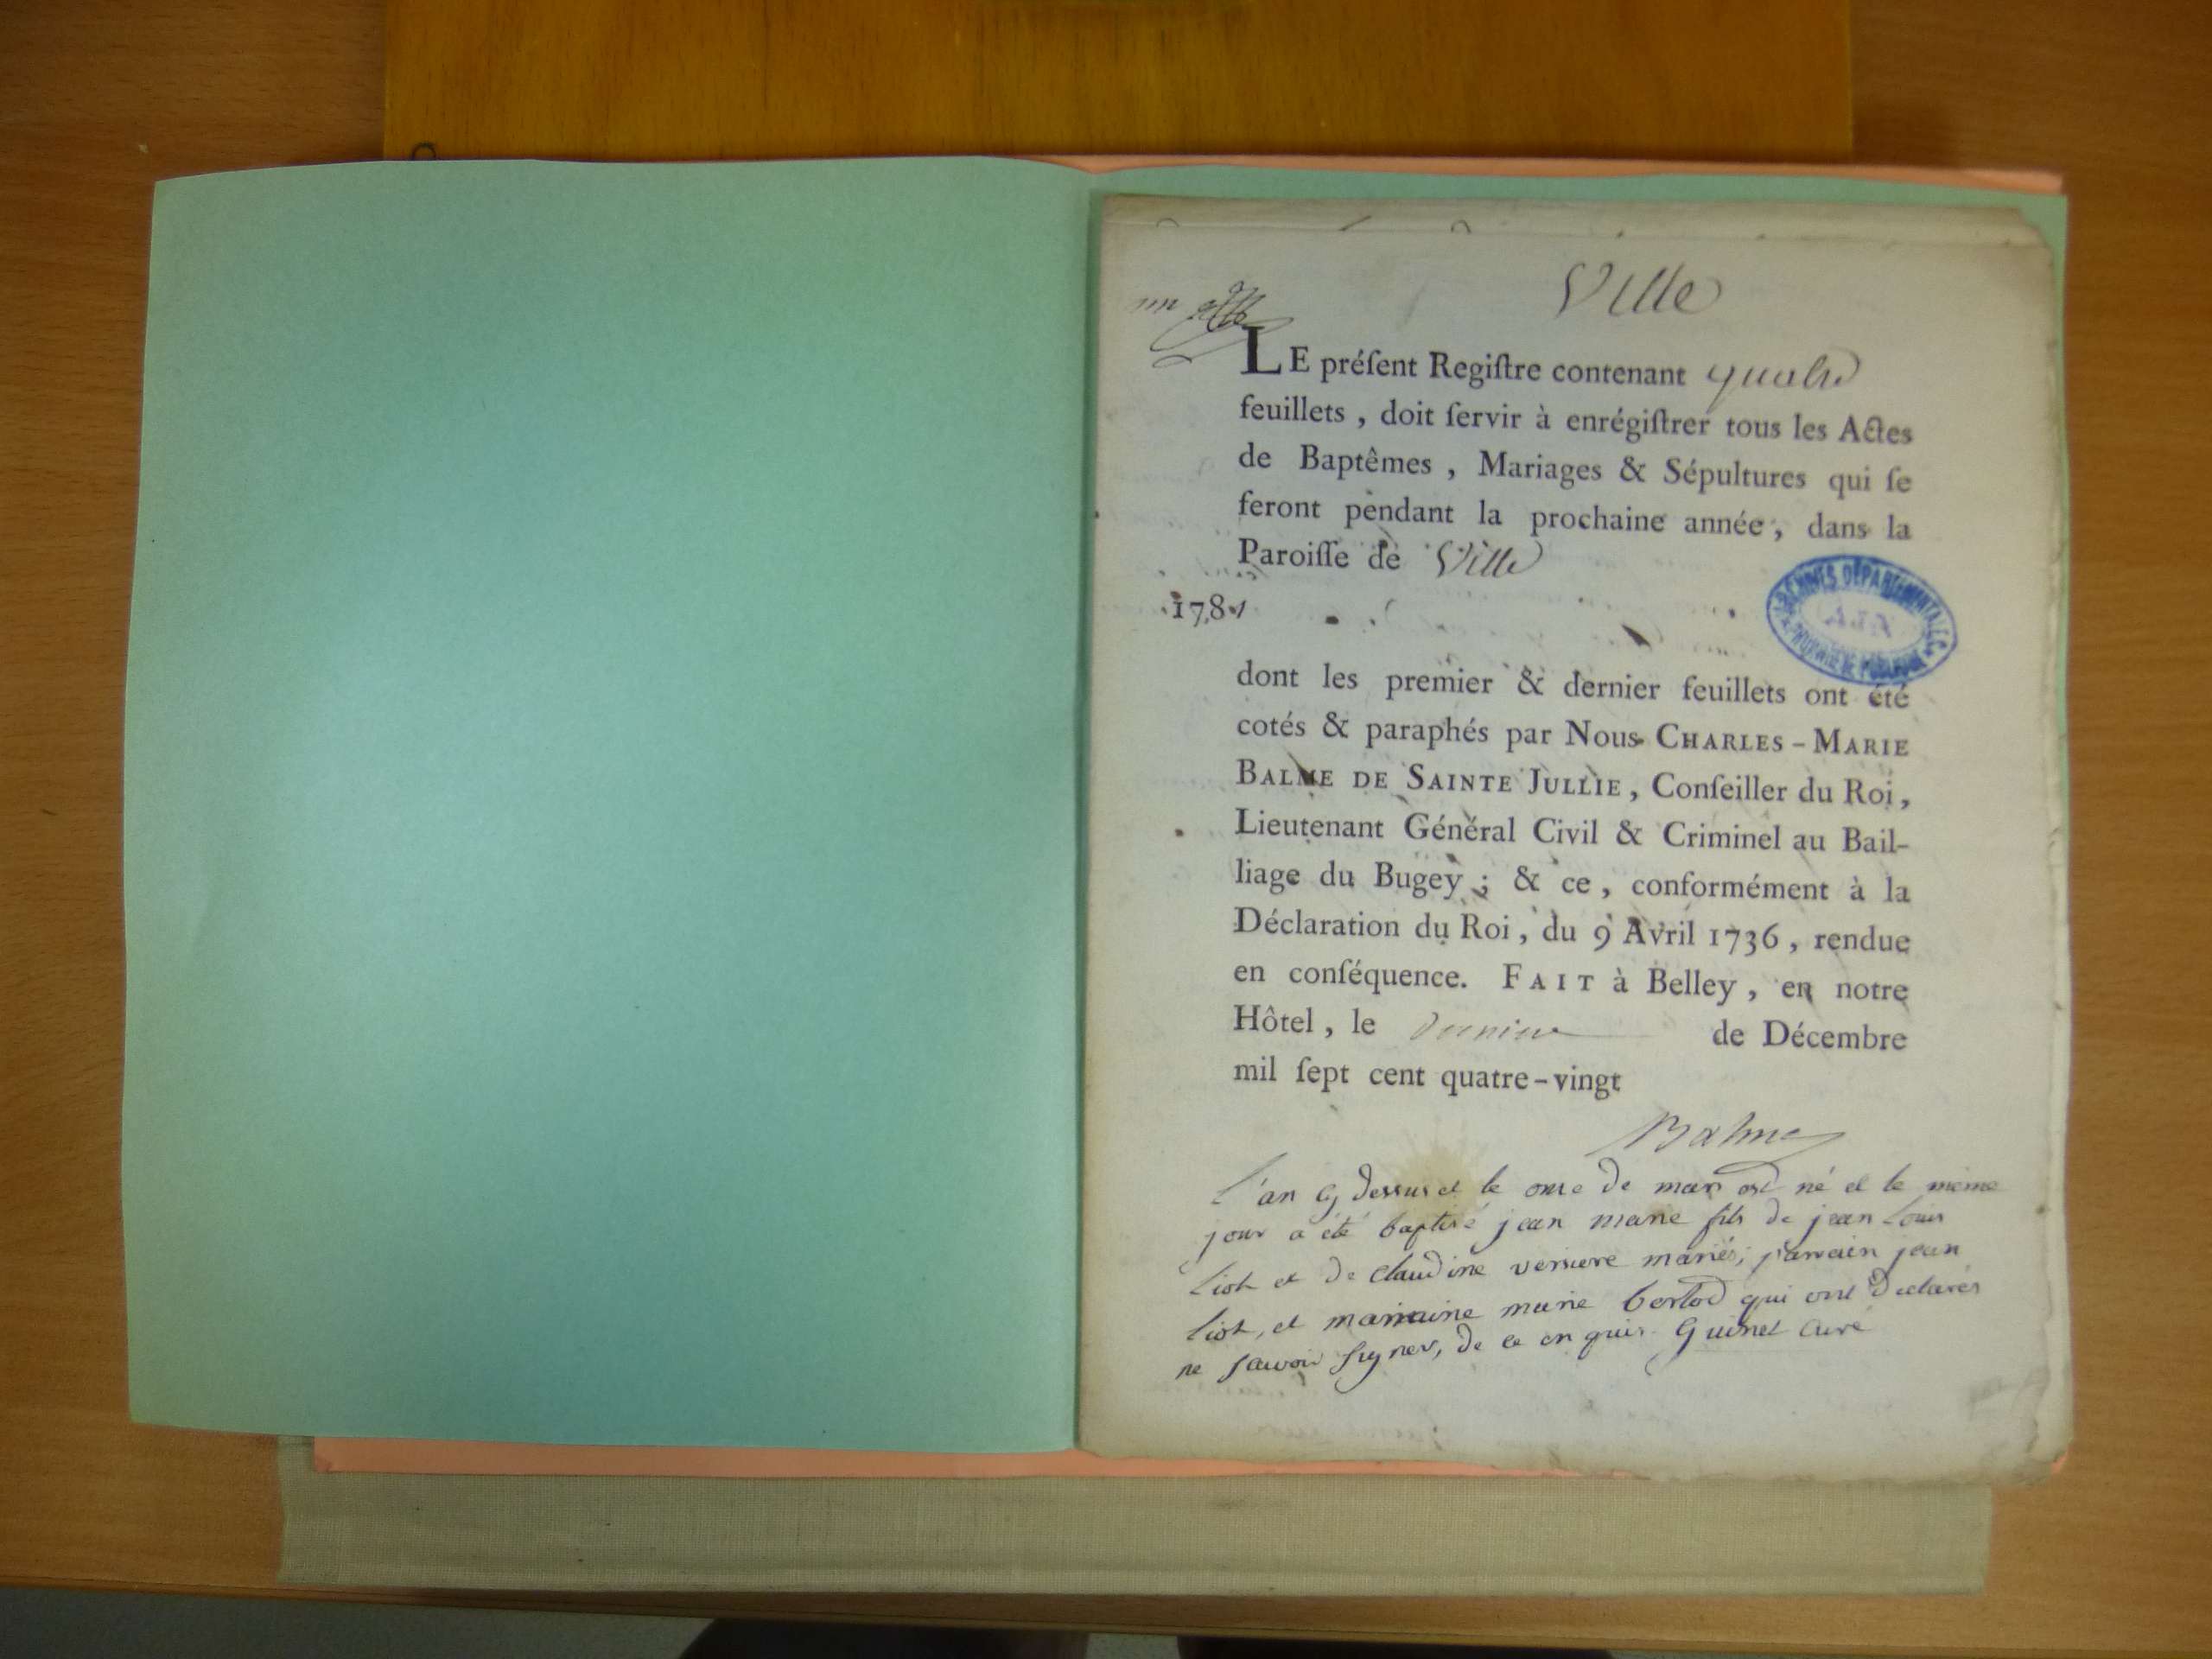 Ville
LE préſent Regiſtre contenant quatre
feuillets, doit ſervir à enrégiſtrer tous les Actes
de Baptêmes, Mariages & Sépultures qui ſe
feront pendant la prochaine année, dans la
Paroiſſe de Ville
1781
ARCHIVES DÉPARTEMENTALES
dont les premier & dernier feuillets ont été
cotés & paraphés par Nous CHARLES-MARIE
BALME DE SAINTE JULLIE, Conſeiller du Roi,
Lieutenant Général Civil & Criminel au Bail-
liage du Bugey; & ce, conformément à la
Déclaration du Roi, du 9 Avril 1736, rendue
en conſéquence. FAIT à Belley, en notre
Hôtel, le de Décembre
mil ſept cent quatre-vingt
Balme
l'an cy dessus et le onze de mars est né et le meme
jour a été baptisé jean marie fils de jean louis
liot et de claudine mariés; parrain jean
liot, et marraine marie bertod qui ont declarés
ne savoir signer, de ce enquis. Guinet curé